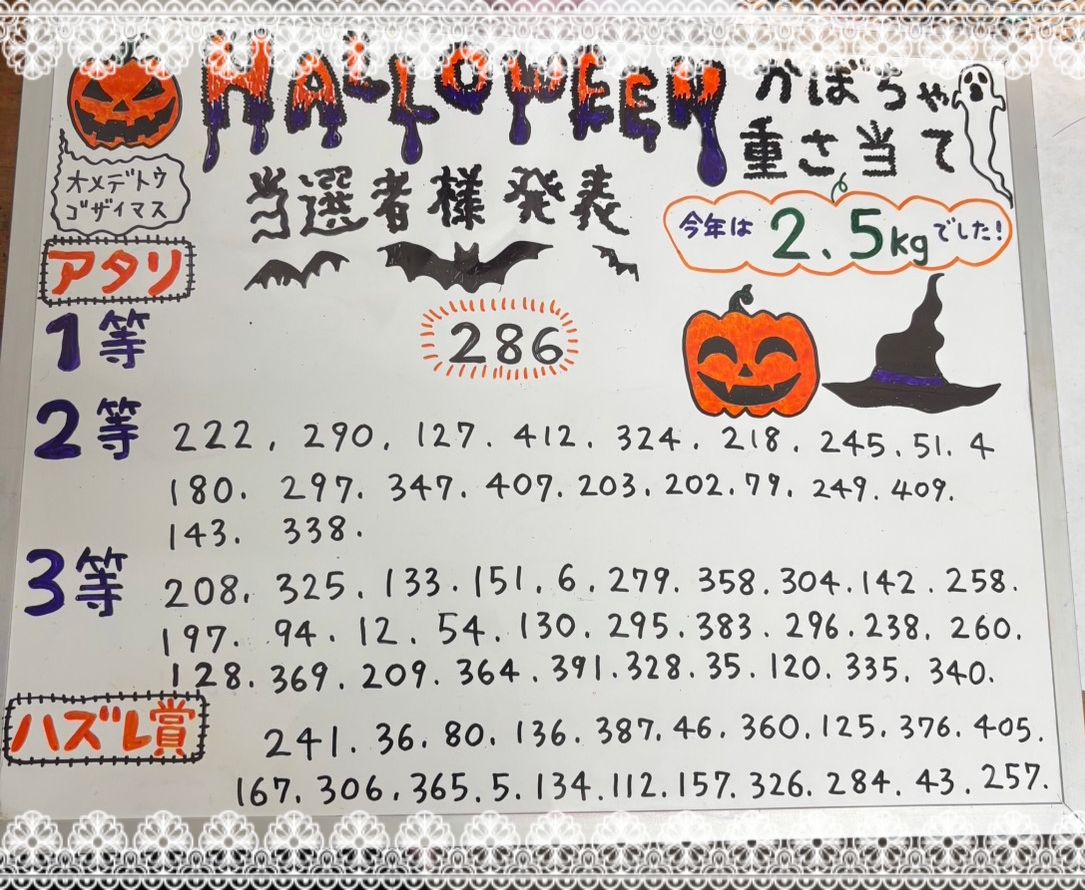 HALLOWEEN
かぼちゃ
重さ当て
オメデトウ
ゴザイマス
当選者様発表
今年は 2.5kgでした!
アタリ
1等 286
2等 222, 290, 127. 412. 324. 218. 245. 51. 4
180. 297. 347. 407. 203. 202. 79. 249. 409.
143. 338.
3等 208, 325. 133. 151. 6. 279. 358. 304. 142. 258.
197. 94. 12. 54. 130. 295. 383. 296. 238. 260.
128. 369. 209. 364. 391. 328. 35. 120. 335. 340.
ハズレ賞
241. 36. 80. 136. 387. 46. 360. 125. 376. 405.
167. 306. 365. 5. 134. 112. 157. 326. 284. 43. 257.